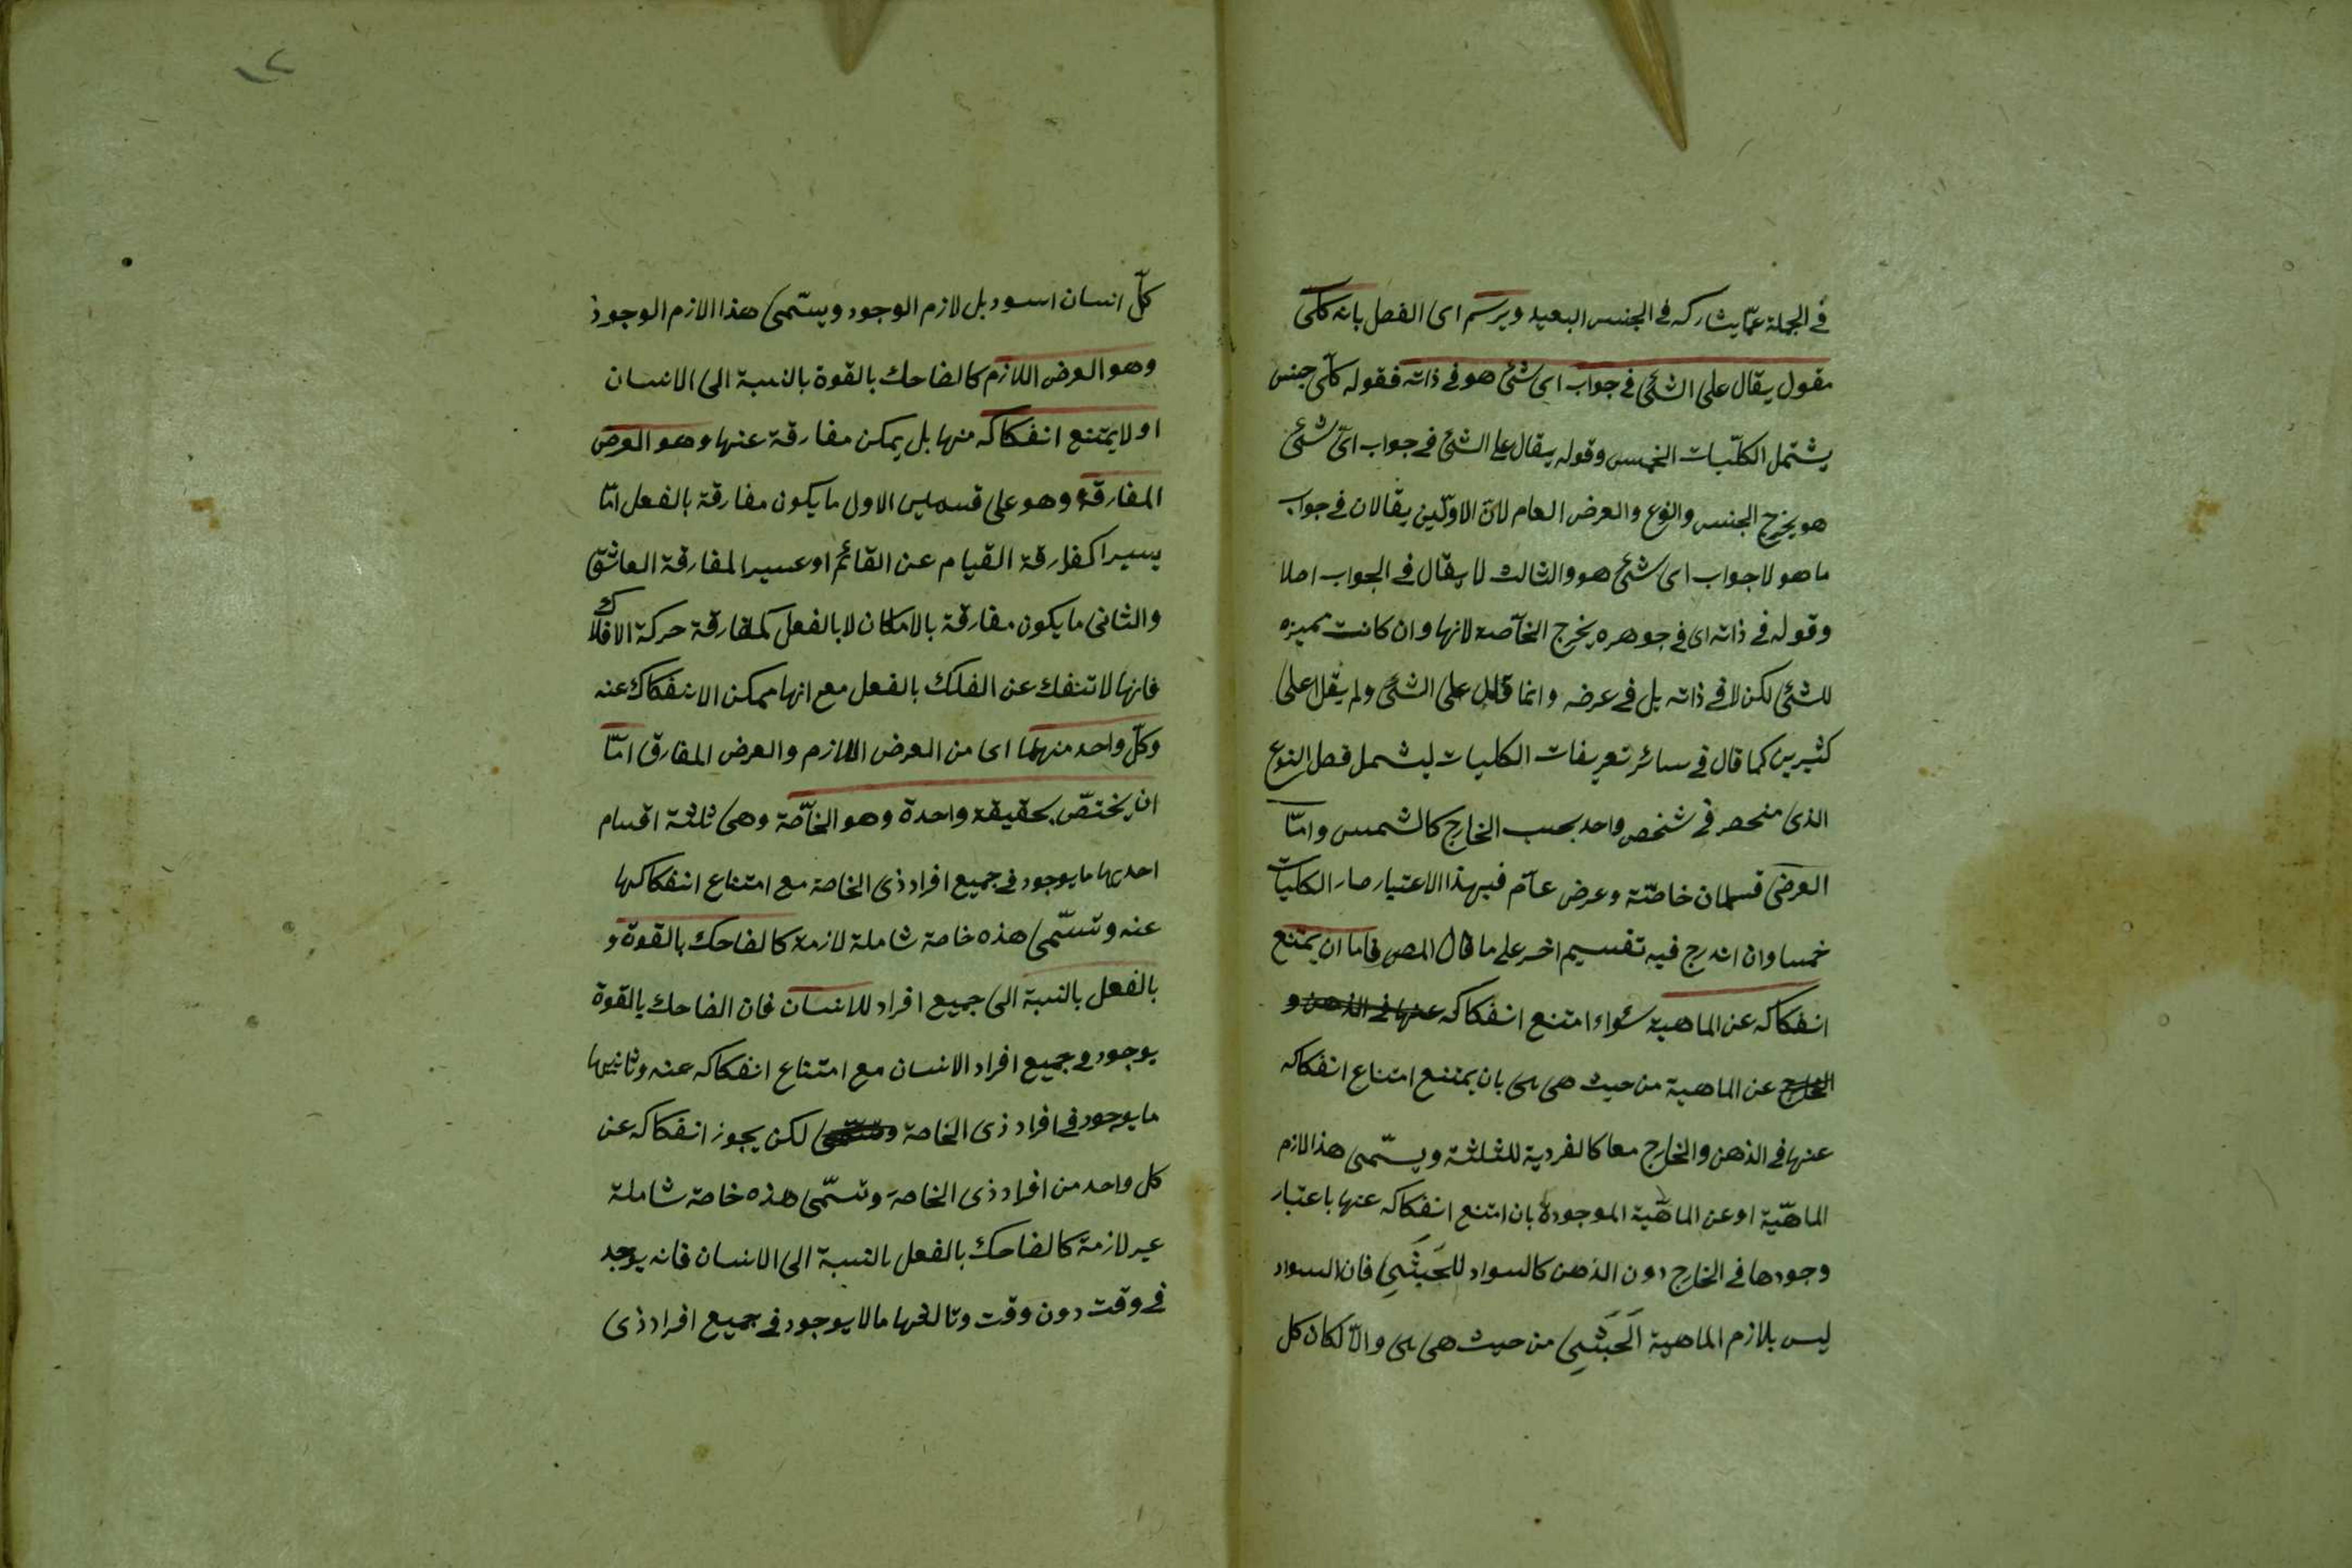 في الجملة عمّا يشاركه في الجنس البعيد ويرسم اى الفصل بانه كلّى
مقول يقال على الشئ في جواب اى شئ هو في ذاته فقوله كلّى جنس
يشتمل الكلّيات الخمس وقوله يقال على الشئ في جواب اىّ شئ
هو يخرج الجنس والنوع والعرض العام لانّ الاوّلين يقالان في جواب
ما هو لا جواب اى شئ هو والثالث لا يقال في الجواب اصلا
وقوله في ذاته اى في جوهره يخرج الخاّصة لانها وان كانت مميزه
للشئ لكن لا في ذاته بل في عرضه وانما قال على الشئ ولم يقل على
كثيرين كما قال في سائر تعريفات الكليات ليشمل فصل النوع
الذى منحصر في شخص واحد بحسب الخارج كالشمس وامّا
العرضى قسمان خاصّة وعرض عآم فبهذا الاعتبار صار الكليات
خمسا وان اندرج فيه تقسيم اخر على ما قال المص فاما ان يمتنع
انفكاكه عن الماهية سواء امتنع انفكاكه عنها في الذهن و
الخارج عن الماهية من حيث هى هى بان يمتنع امتناع انفكاكه
عنها في الذهن والخارج معا كالفردية للثلثة ويسّمى هذا لازم
الماهّية او عن الماهّية الموجودة بان امتنع انفكاكه عنها باعتبار
وجودها في الخارج دون الذهن كالسواد للحَبَشِي فان السواد
ليس بلازم الماهية الَحَبَشِي من حيث هى هى والاّ لكان كل
١٢
كلّ انسان اسود بل لازم الوجود ويسّمى هذا الازم الوجود
وهو العرض اللازم كالضاحك بالقوة بالنسبة الى الانسان
او لا يمتنع انفكاكه منها بل يمكن مفارقة عنها وهو العرض
المفارقة وهو على قسمين الاول ما يكون مفارقة بالفعل امّا
يسيرا كمفارقة القيام عن القائم او عسيرا لمفارقة العاشق
والثانى ما يكون مفارقة بالامكان لا بالفعل كمفارقة حركة الافلاك
فانها لا تنفك عن الفلك بالفعل مع انها ممكن الانفكاك عنه
وكلّ واحد منهما اى من العرض اللازم والعرض المفارق امّا
ان يختصّ بحقيقة واحدة وهو الخاّصة وهى ثلثة اقسام
احديها ما يوجود في جميع افراد ذى الخاصة مع امتناع انفكاكها
عنه وتسّمى هذه خاصة شاملة لازمة كالضاحك بالقوة و
بالفعل بالنسبة الى جميع افراد للانسان فان الضاحك بالقوة
يوجود في جميع افراد الانسان مع امتناع انفكاكه عنه وثانيها
ما يوجود في افراد ذى الخاصة وتسّمى لكن يجوز انفكاكه عن
كل واحد من افراد ذى الخاصة وتسّمى هذه خاصة شاملة
غير لازمة كالضاحك بالفعل بالنسبة الى الانسان فانه يوجد
في وقت دون وقت وثالثها ما لا يوجود في جميع افراد ذى